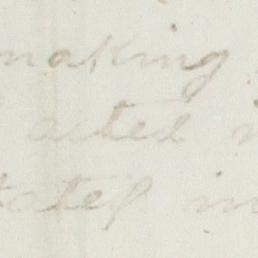 making
acted
States in